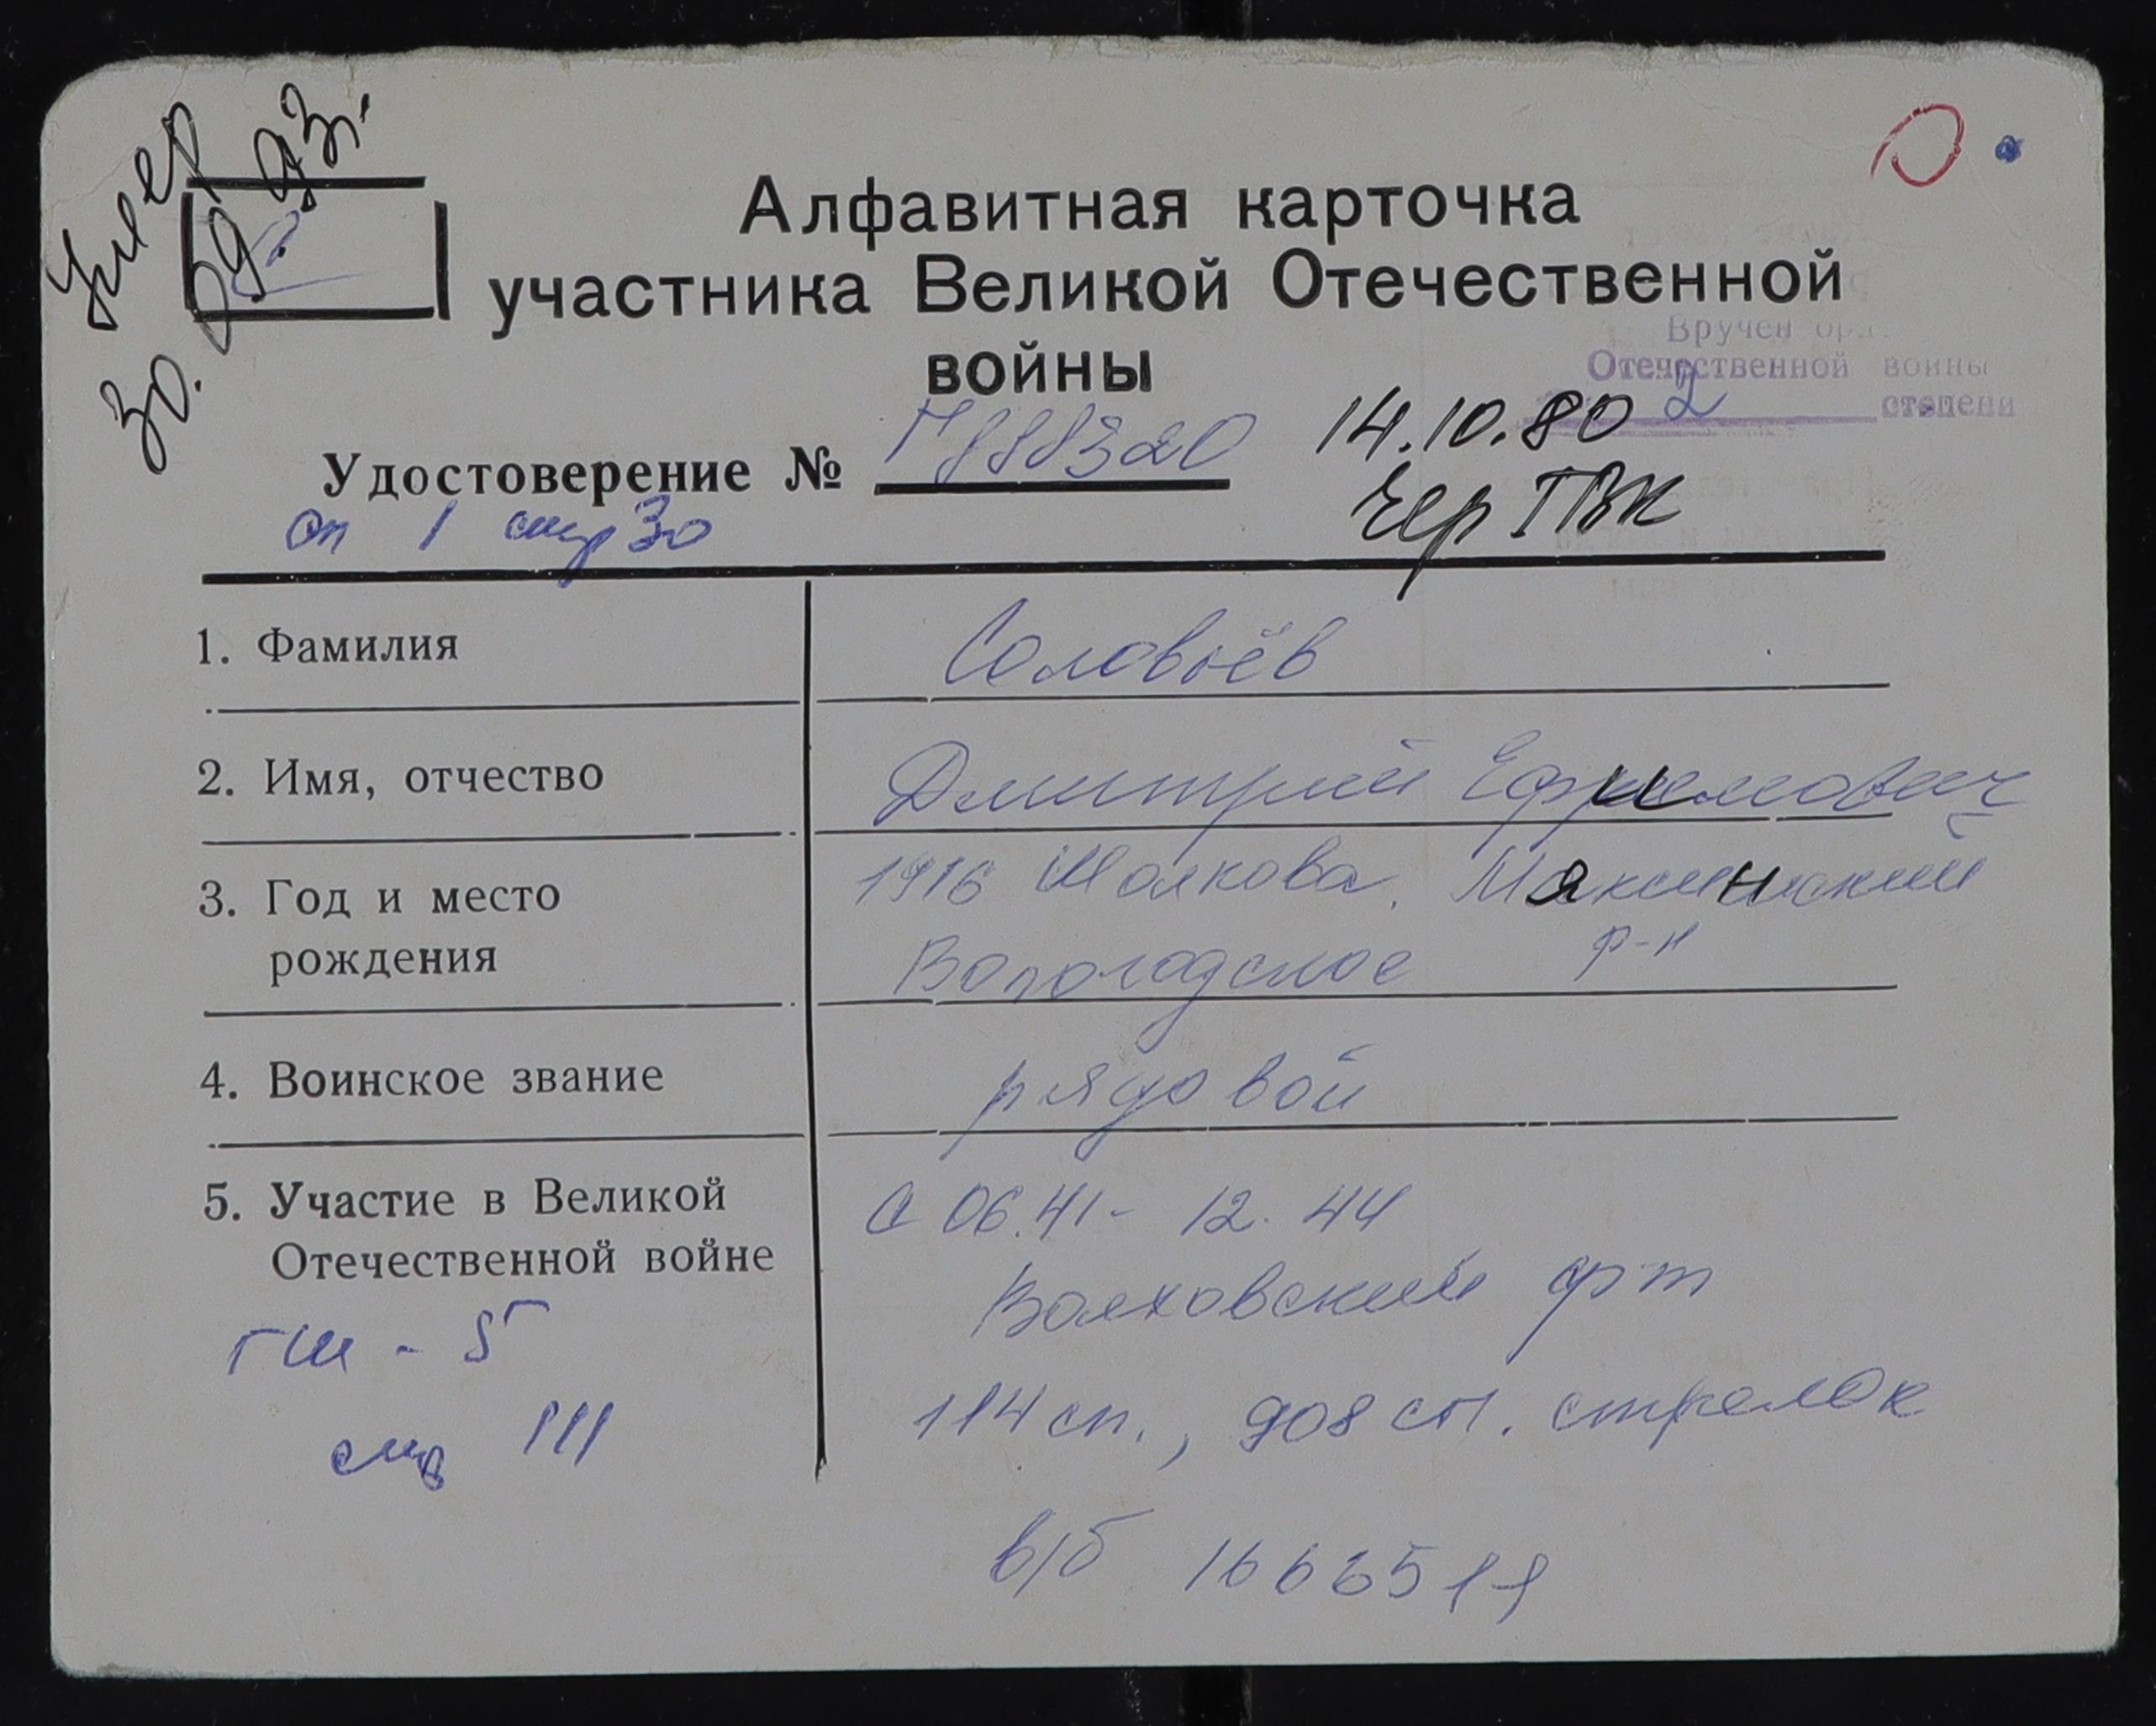 Умер
30.09.93г.
Алфавитная карточка
участника Великой Отечественной
войны
Вручен орд.
Отечественной войны
2 степени
Удостоверение № Г 888320
14.10.80
Чер ГВК
оп 1 стр 30
1. Фамилия Соловьёв
2. Имя, отчество Дмитрий Ефимович
3. Год и место 1916 Мяксинский
рождения Вологодское р-н
4. Воинское звание рядовой
5. Участие в Великой С 06.41 - 12.44
Отечественной войне Волховский фр-т
ГШ - 5
114 сп., 908 сп. стрелок
стр 111
в/б